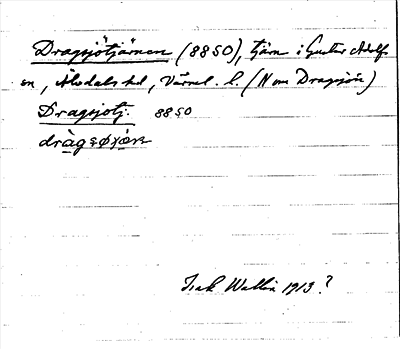 Dragsjötjärnen (8850), tjärn i Gustav Adolfs
sn, Älvdals hd, Värml. l. (N om Dragsjön)
Dragsjötj. 8850
Isak Wallin 1913?